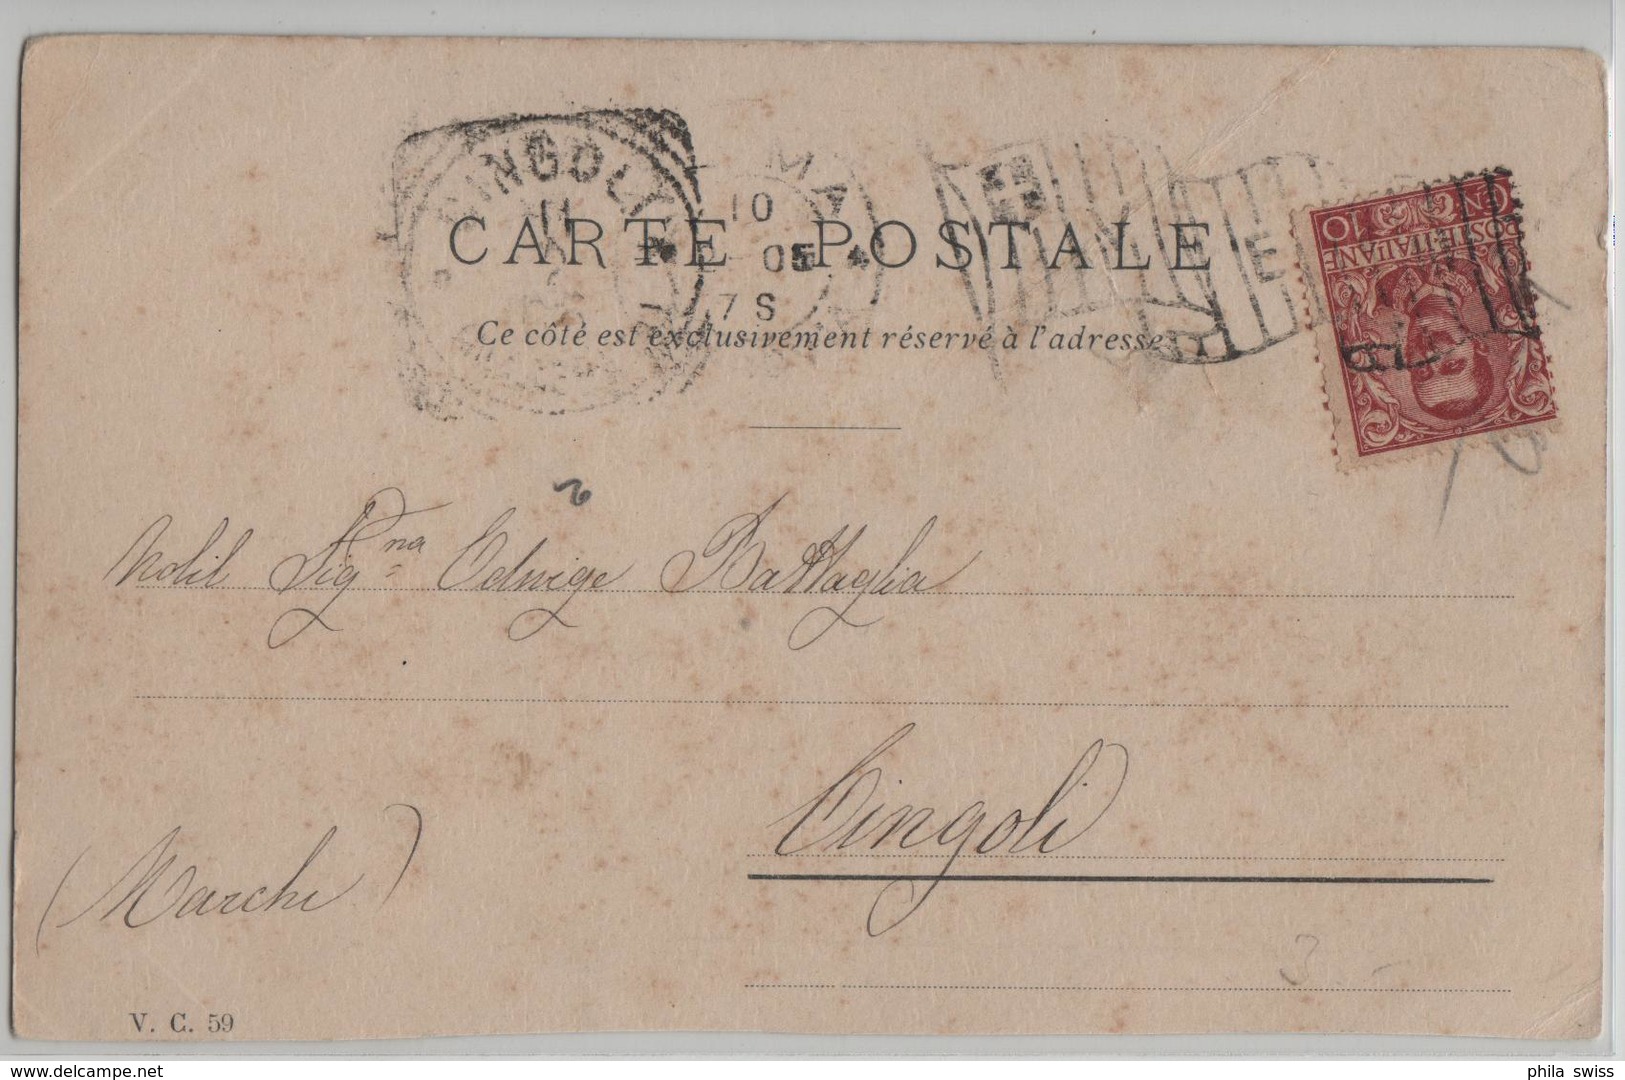 CINGOLI
MA
10
05 4
7 S
CARTE POSTALE
Ce côté est exclusivement réservé à l'adresse
POSTE·ITALIANE
CN 10
Nobil Sig.na Edwige Battaglia
Cingoli
(Marche)
3 -
V. C. 59
delcampe.net
phila_swiss